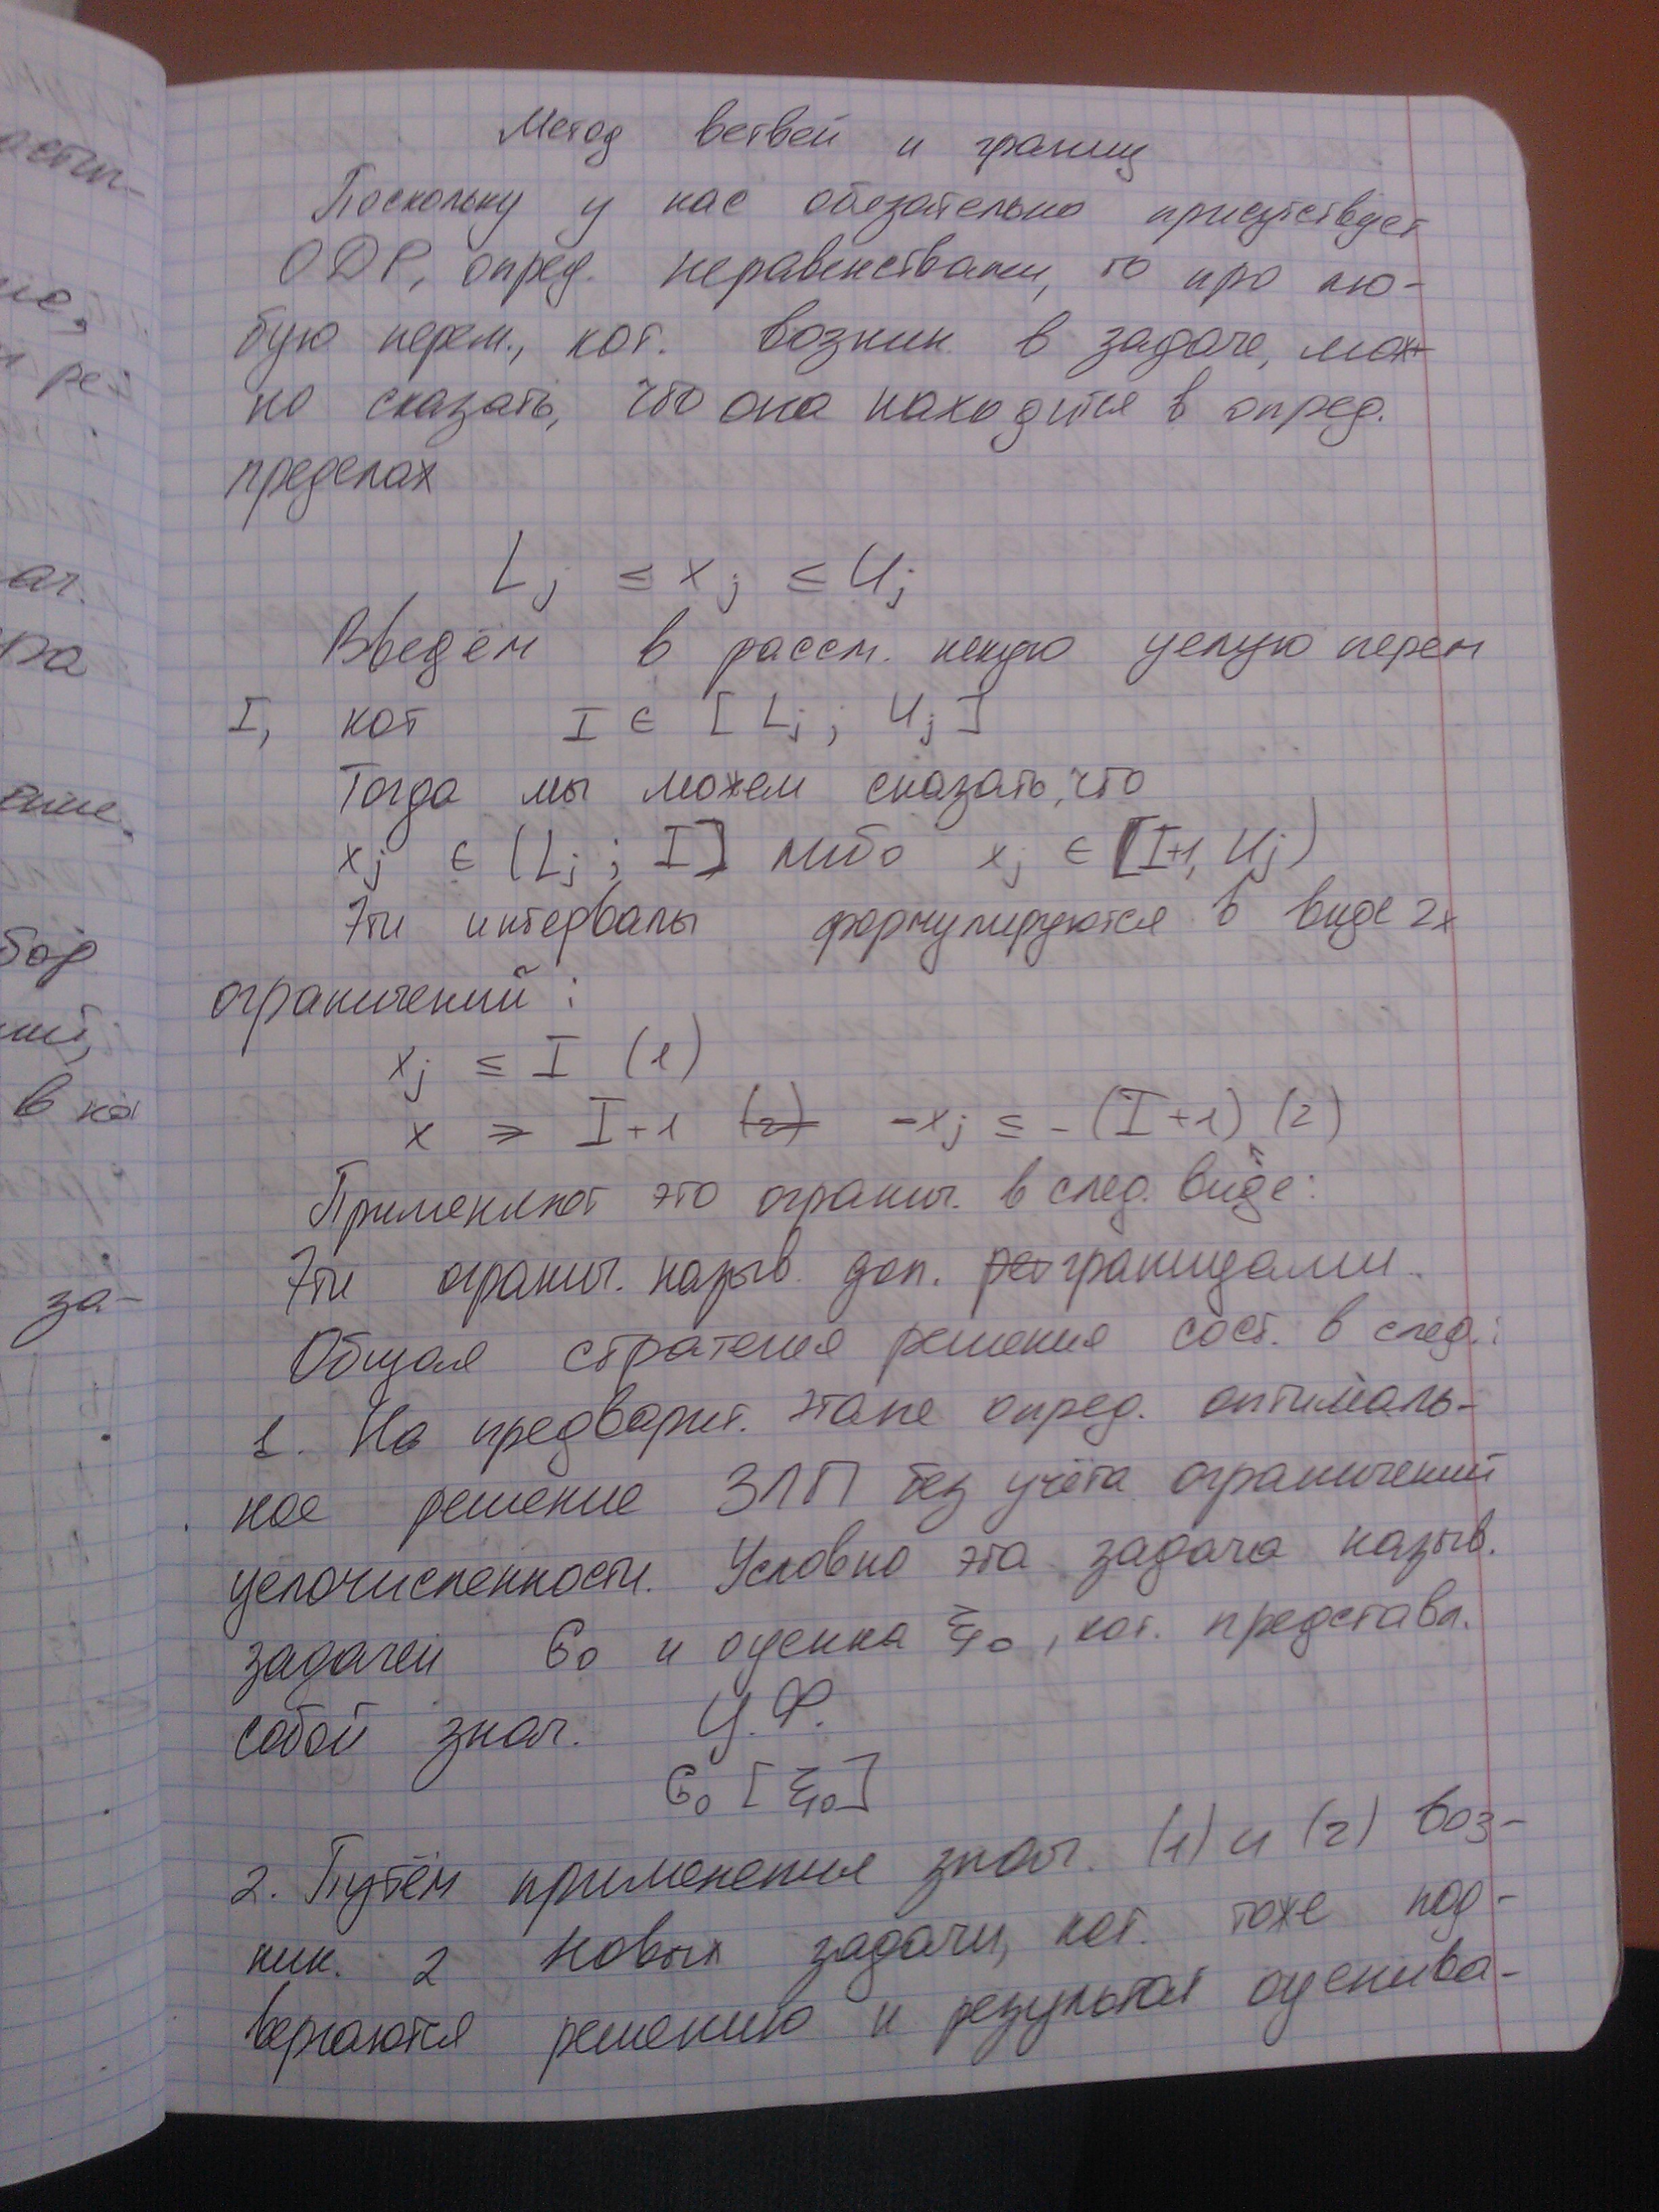 Метод ветвей и границ
Поскольку у нас обязательно присутствует
ОДР, опред. неравенствами, то про лю-
бую перем., кот. возник в задаче, мож-
но сказать, что она находится в опред.
пределах
Lj ≤ xj ≤ Uj
Введём в рассм. некую целую перем
I, кот I ∈ [Lj; Uj]
Тогда мы можем сказать, что
xj ∈ (Lj; I] либо xj ∈ [I+1, Uj)
Эти интервалы формулируются в виде 2х
ограничений:
xj ≤ I (1)
x ≥ I+1 (2) -xj ≤ -(I+1) (2)
Применяют это огранич. в след. виде:
Эти огранич. назыв. доп. границами.
Общая стратегия решения сост. в след.:
1. На предварит. этапе опред. оптималь-
ное решение ЗЛП без учёта ограничений
целочисленности. Условно эта задача назыв.
задачей G₀ и оценка ξ₀, кот. представл.
собой знач. Ц.Ф.
G₀ [ξ₀]
2. Путём применения знач. (1) и (2) воз-
ник. 2 новых задачи, кот. тоже под-
вергаются решению и результат оценива-
ание,
рей
ач.
ра
бор
ний,
в ко
за-